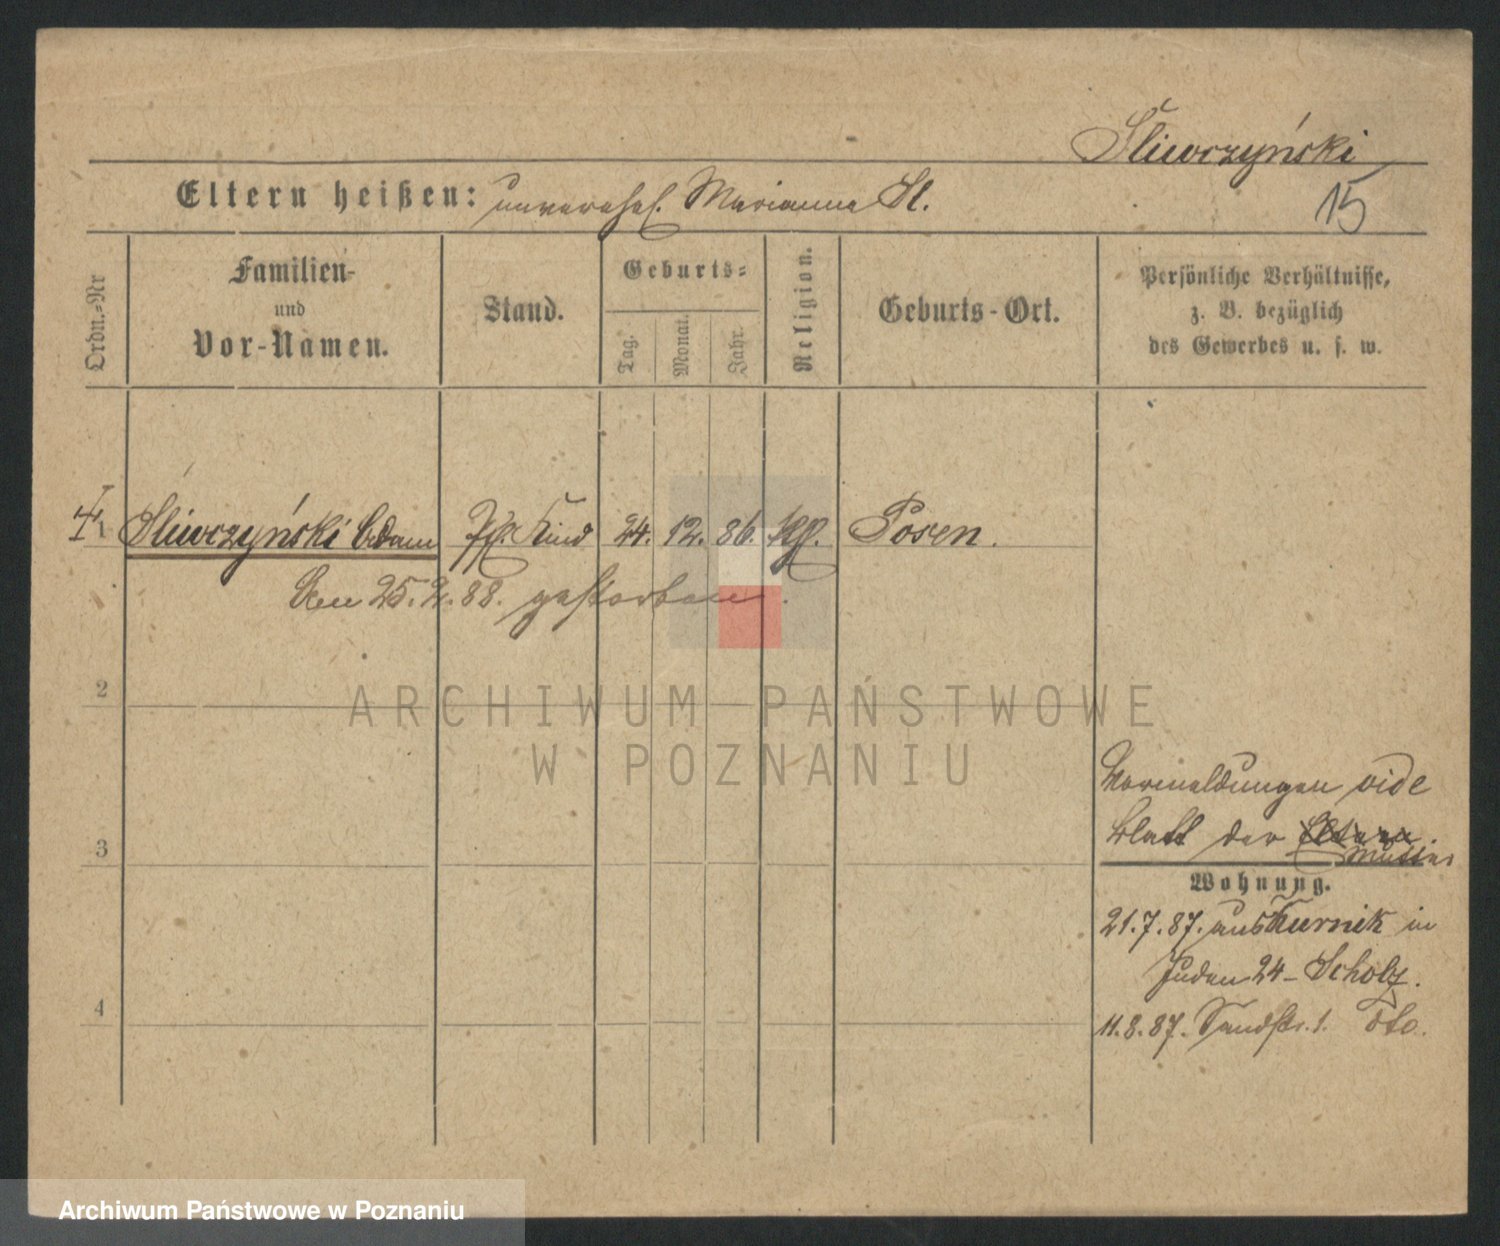 Śliwczyński
15
Eltern heißen: unverehel. Marianna Sl.
Ordn.-Nr
Familien-
und
Vor-Namen.
Stand.
Geburts-
Tag.
Monat.
Jahr.
Religion.
Geburts-Ort.
Persönliche Verhältnisse,
z. B. bezüglich
des Gewerbes u. s. w.
1 Śliwczyński Adam Kind 24. 12. 86. Posen.
Den 25. 2. 88. gestorben.
2
ARCHIWUM PAŃSTWOWE
W POZNANIU
Vormeldungen vide
Blatt der Eltern
Mutter
3
Wohnung.
21.7.87. aus Kurnik in
Juden 24 - Scholz.
4
11.8.87. Sandstr. 1. dto.
Archiwum Państwowe w Poznaniu